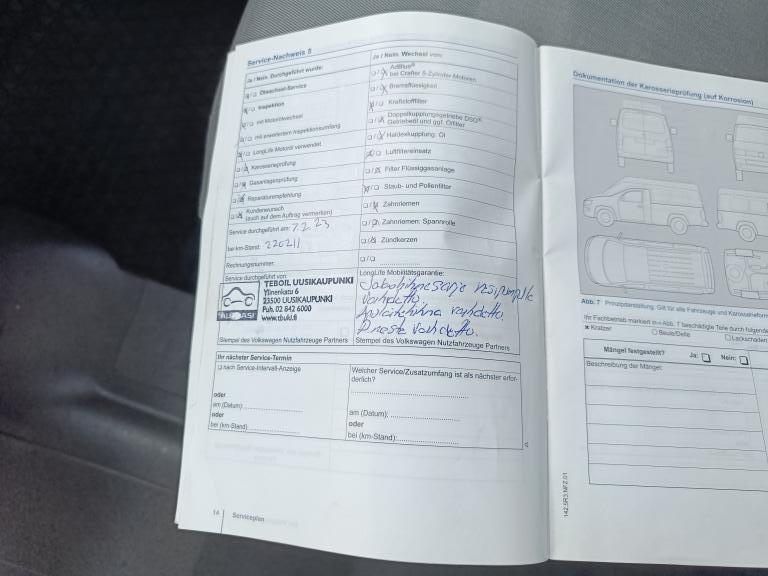 Service-Nachweis 5
Ja / Nein. Durchgeführt wurde:
Ölwechsel-Service
Inspektion
mit Motorölwechsel
mit erweitertem Inspektionsumfang
LongLife Motoröl verwendet
Karosserieprüfung
Gasanlagenprüfung
Reparaturempfehlung
Kundenwunsch
(auch auf dem Auftrag vermerken)
Service durchgeführt am: 7.2.23
bei km-Stand: 220211
Rechnungsnummer:
Service durchgeführt von:
TEBOIL UUSIKAUPUNKI
Ylinenkatu 6
23500 UUSIKAUPUNKI
Puh. 02 842 6000
www.tbuki.fi
AUTOASI
Stempel des Volkswagen Nutzfahrzeuge Partners
Ja / Nein. Wechsel von:
AdBlue®
bei Crafter 5-Zylinder Motoren
Bremsflüssigkeit
Kraftstofffilter
Doppelkupplungsgetriebe DSG®
Getriebeöl und ggf. Ölfilter
Haldexkupplung: Öl
Luftfiltereinsatz
Filter Flüssiggasanlage
Staub- und Pollenfilter
Zahnriemen
Zahnriemen: Spannrolle
Zündkerzen
LongLife Mobilitätsgarantie:
vaihdettu
vaihdettu
vaihdettu.
Stempel des Volkswagen Nutzfahrzeuge Partners
Ihr nächster Service-Termin
nach Service-Intervall-Anzeige
oder
am (Datum):
oder
bei (km-Stand):
Welcher Service/Zusatzumfang ist als nächster erfor-
derlich?
am (Datum):
oder
bei (km-Stand):
14
Serviceplan
Dokumentation der Karosserieprüfung (auf Korrosion)
Abb. 7 Prinzipdarstellung: Gilt für alle Fahrzeuge und Karosserieform
Ihr Fachbetrieb markiert in Abb. 7 beschädigte Teile durch folgende
Kratzer
Beule/Delle
Lackschaden
Mängel festgestellt?
Ja:
Nein:
Beschreibung der Mängel:
142.5R3.NFZ.01